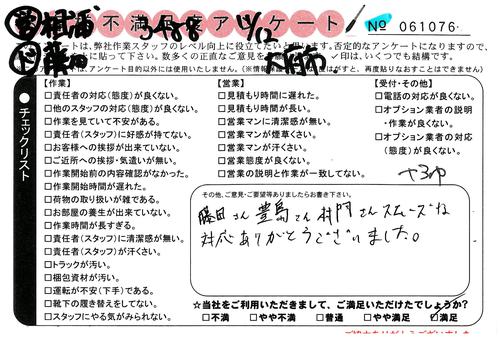 不満足度アンケート
No 061076
10/12
アンケートは、弊社作業スタッフのレベル向上に役立てたいと思います。否定的なアンケートになりますので、
に貼って下さい。数多くの正直なご意見を
印は、いくつでも結構です。
アンケート目的以外には使用いたしません。
チェックリスト
【作業】
□責任者の対応(態度)が良くない。
□他のスタッフの対応(態度)が良くない。
□作業を見ていて不安がある。
□責任者(スタッフ)に好感が持てない。
□お客様への挨拶が出来ていない。
□ご近所への挨拶・気遣いが無い。
□作業開始前の内容確認がなかった。
□作業開始時間が遅れた。
□荷物の取り扱いが雑である。
□お部屋の養生が出来ていない。
□作業時間が長すぎる。
□責任者(スタッフ)に清潔感が無い。
□責任者(スタッフ)が汗くさい。
□トラックが汚い。
□梱包資材が汚い。
□運転が不安(下手)である。
□靴下の履き替えをしてない。
□スタッフにやる気がみられない。
【営業】
□見積もり時間に遅れた。
□見積もり時間が長い。
□営業マンに清潔感が無い。
□営業マンが煙草くさい。
□営業マンが汗くさい。
□営業態度が良くない。
□営業の説明と作業が一致してない。
【受付・その他】
□電話の対応が良くない。
□オプション業者の説明
・作業が良くない。
□オプション業者の対応
(態度)が良くない。
その他、ご意見・ご要望等ありましたらお書き下さい。
藤田さん 豊島さん 村門さん スムーズな
対応ありがとうございました。
☆当社をご利用いただきまして、ご満足いただけたでしょうか?
□不満 □やや不満 □普通 □やや満足 ☑満足